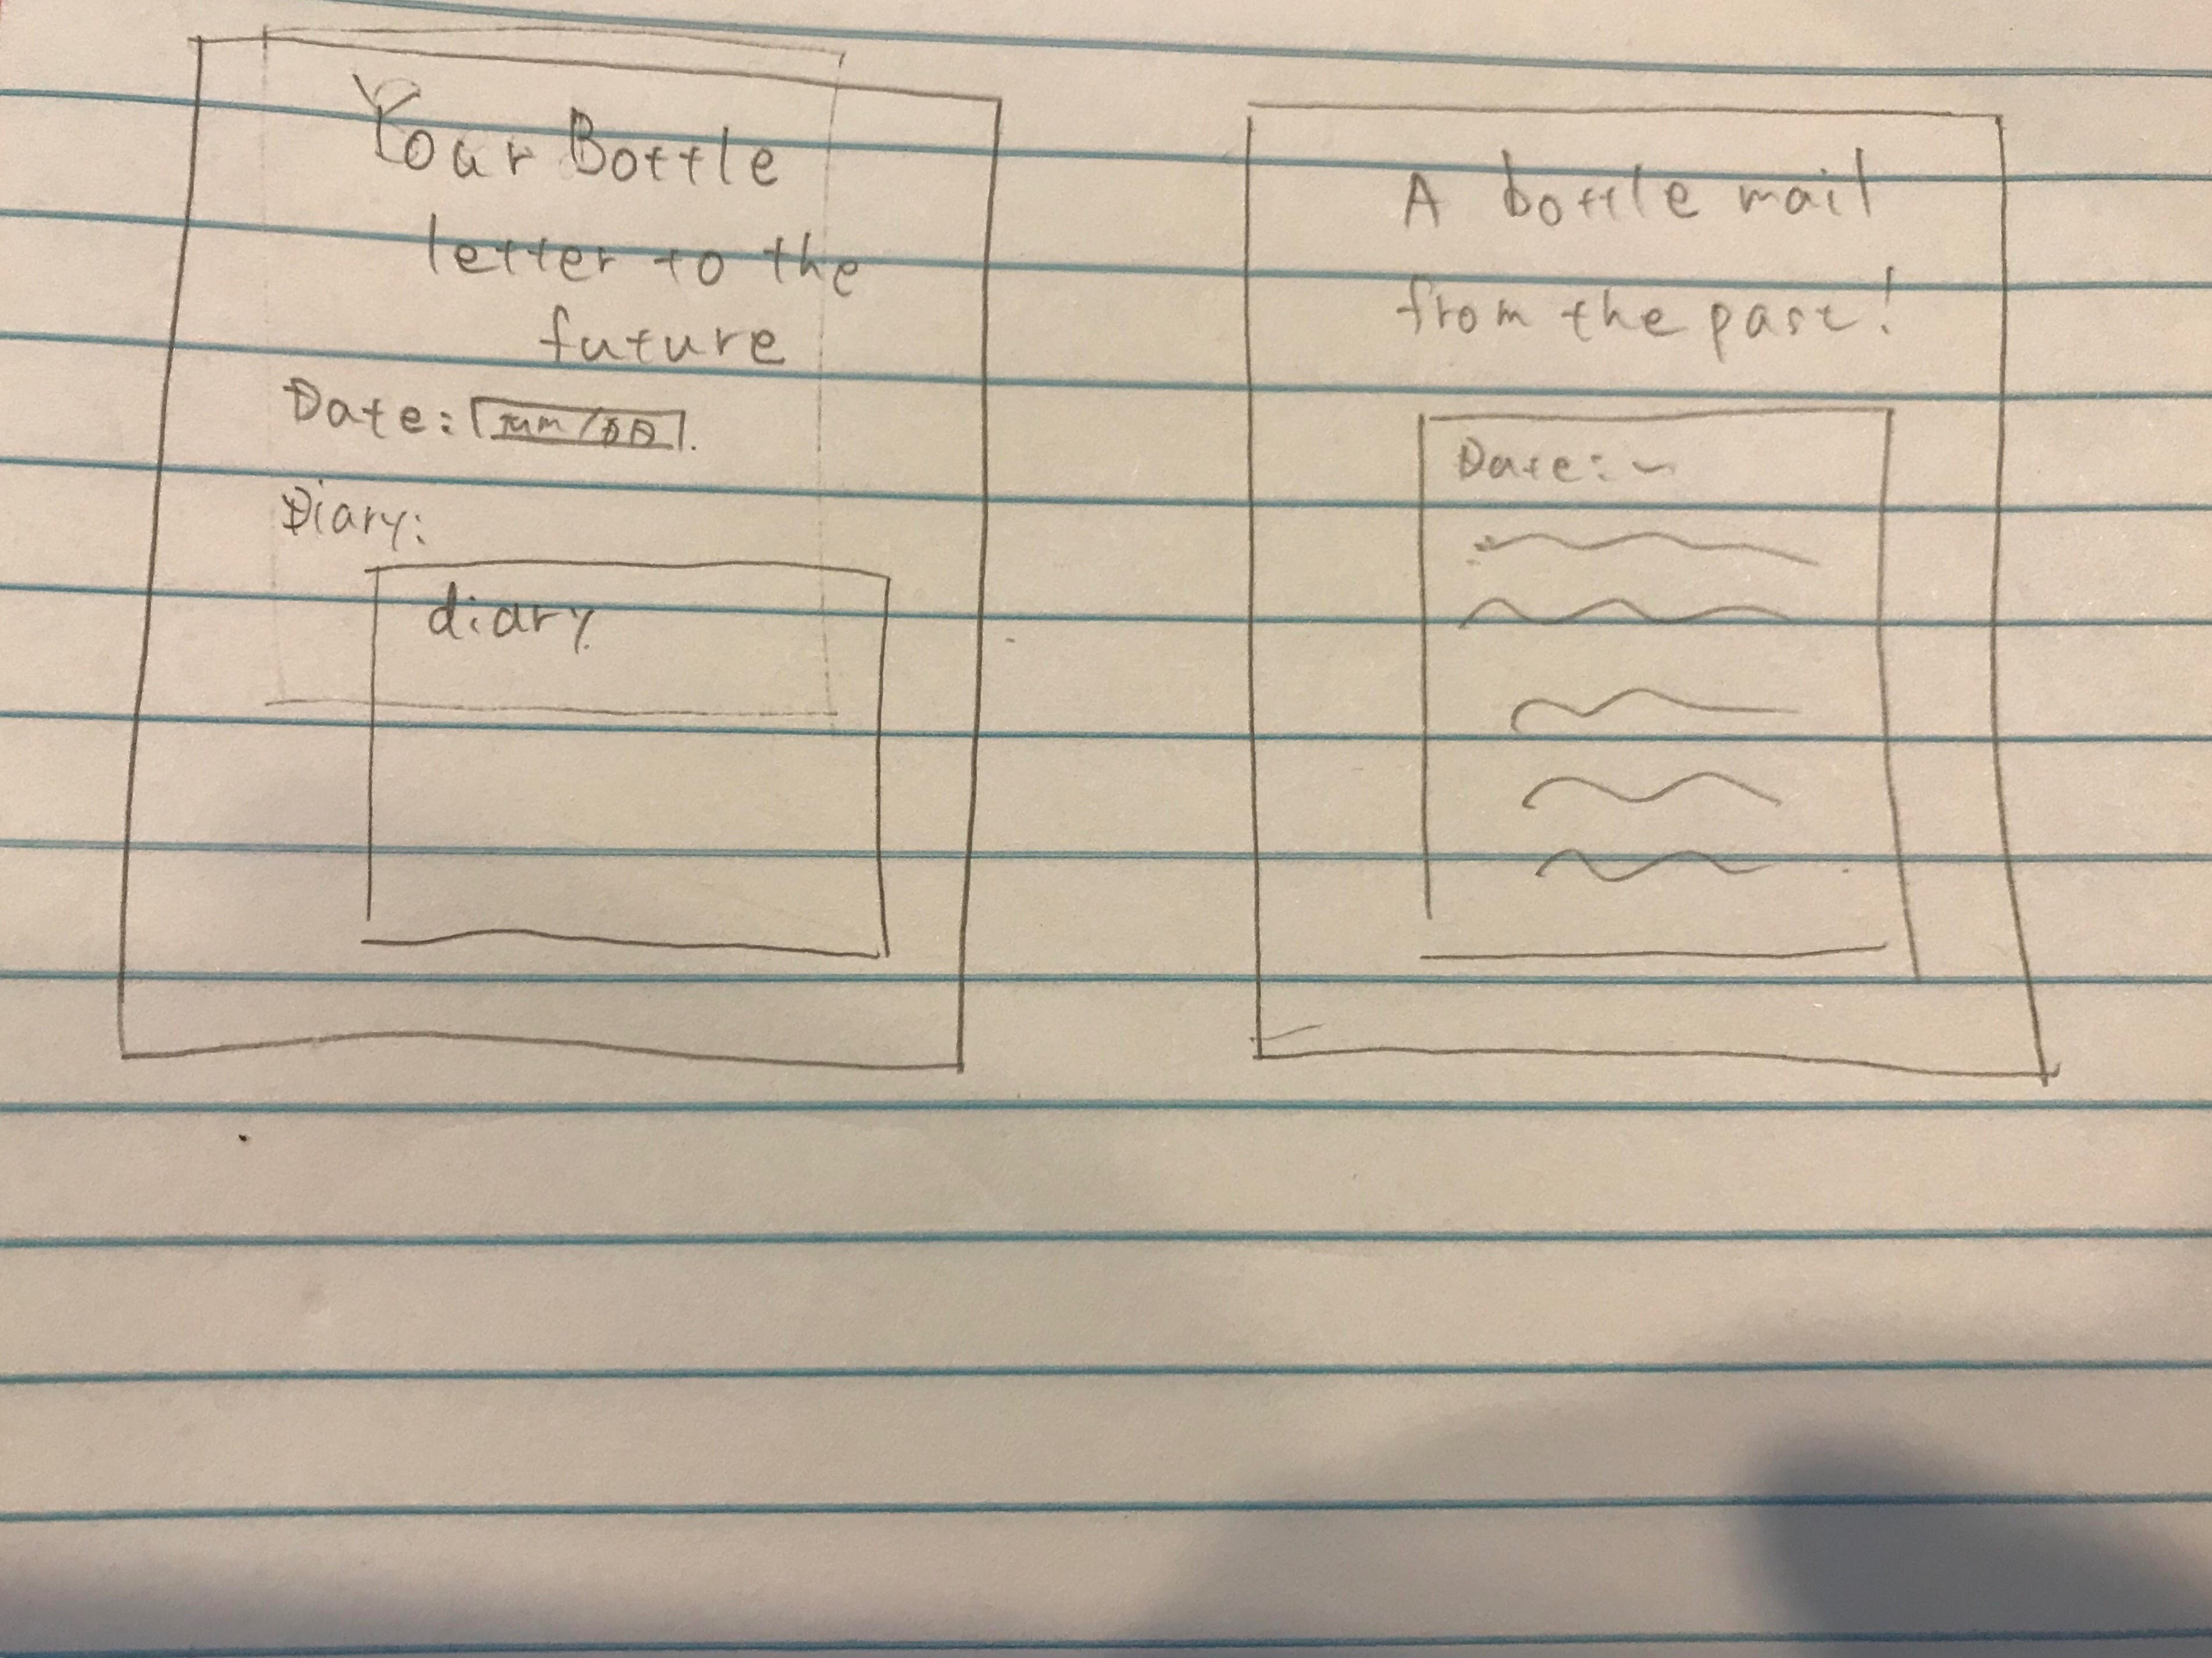 Your Bottle
letter to the
future
Date: mm/DD
Diary:
diary
A bottle mail
from the past!
Date: